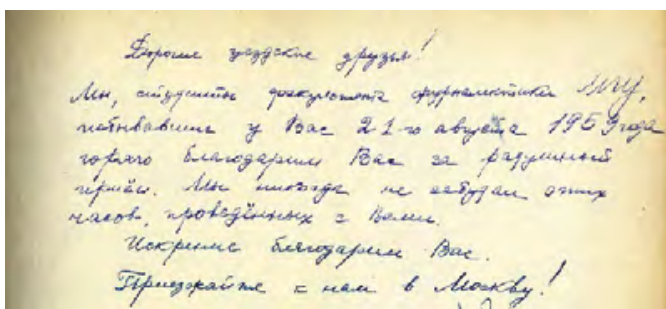 Дорогие уездские друзья!
Мы, студенты факультета журналистики МГУ,
побывавшие у Вас 21-го августа 1959 года
горячо благодарим Вас за радушный
приём. Мы никогда не забудем этих
часов, проведённых с Вами.
Искренне благодарим Вас.
Приезжайте к нам в Москву!